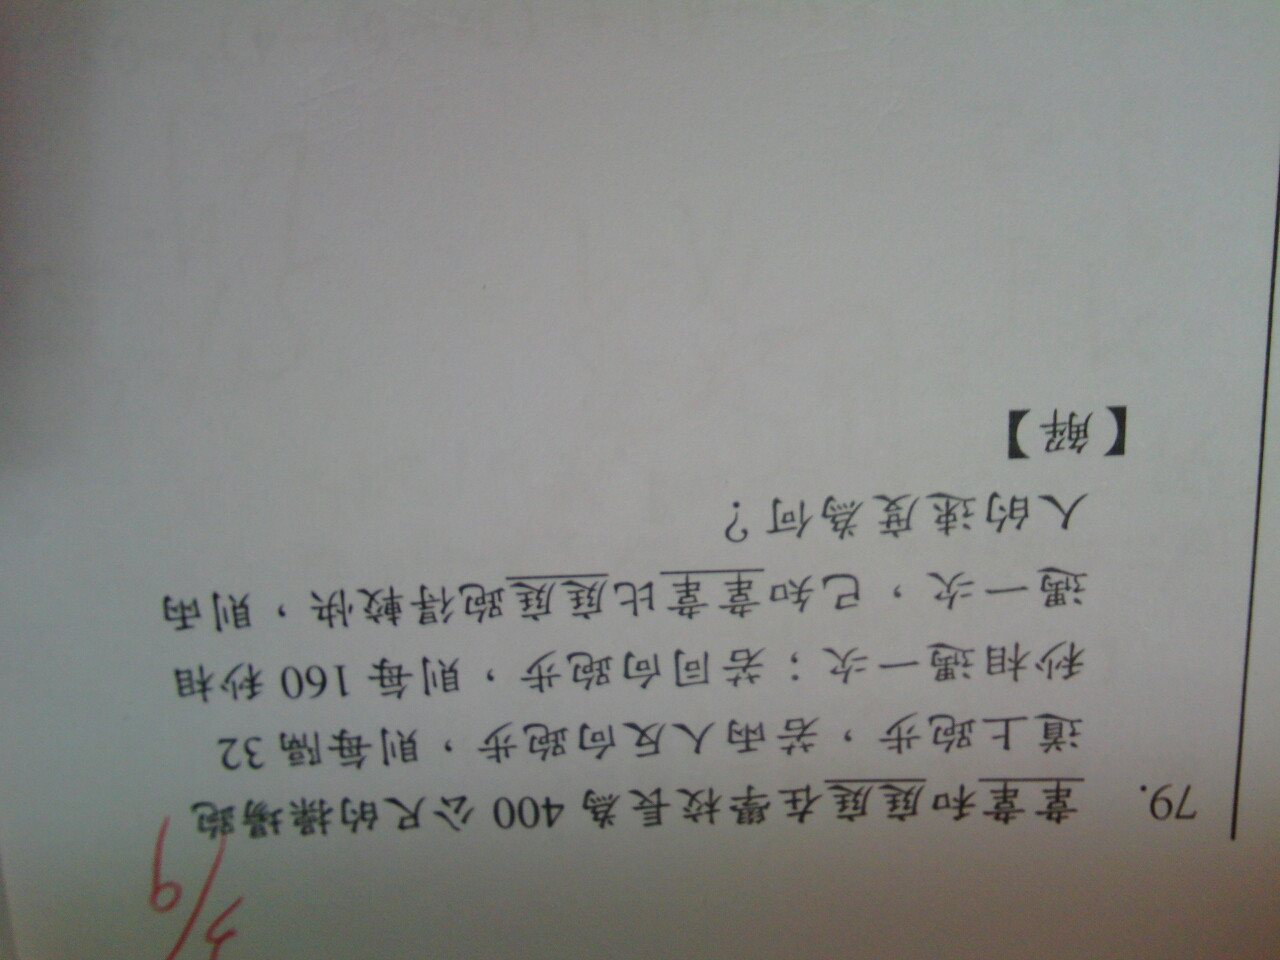 79. 韋韋和庭庭在學校長為 400 公尺的操場跑
道上跑步，若兩人反向跑步，則每隔 32
秒相遇一次；若同向跑步，則每 160 秒相
遇一次，已知韋韋比庭庭跑得較快，則兩
人的速度為何？
【解】